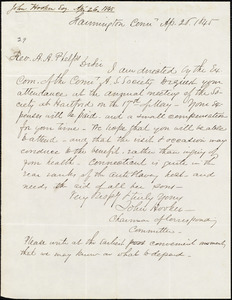 John Hooker Esq Ap 26, 1845
Farmington Conn Ap. 25 1845
29
Rev. A. A. Phelps,
I am directed by the Ex
Com. of the Connt A. S. Society to request your
attendance at the annual meeting of the
Society at Hartford on the 17th of May. Your ex
penses will be paid and a small compensation
for your time. We hope that you will be able
to attend, and that the visit & occasion may
conduce to the benefit rather than injury of
your health. Connecticut is quite in the
rear ranks of the anti Slavery host and
needs the aid of all her sons.
Very Respy & truly yours
John Hooker
Chairman of Correspondg
Committee.
Please write at the earliest convenient moment,
that we may know on what to depend.